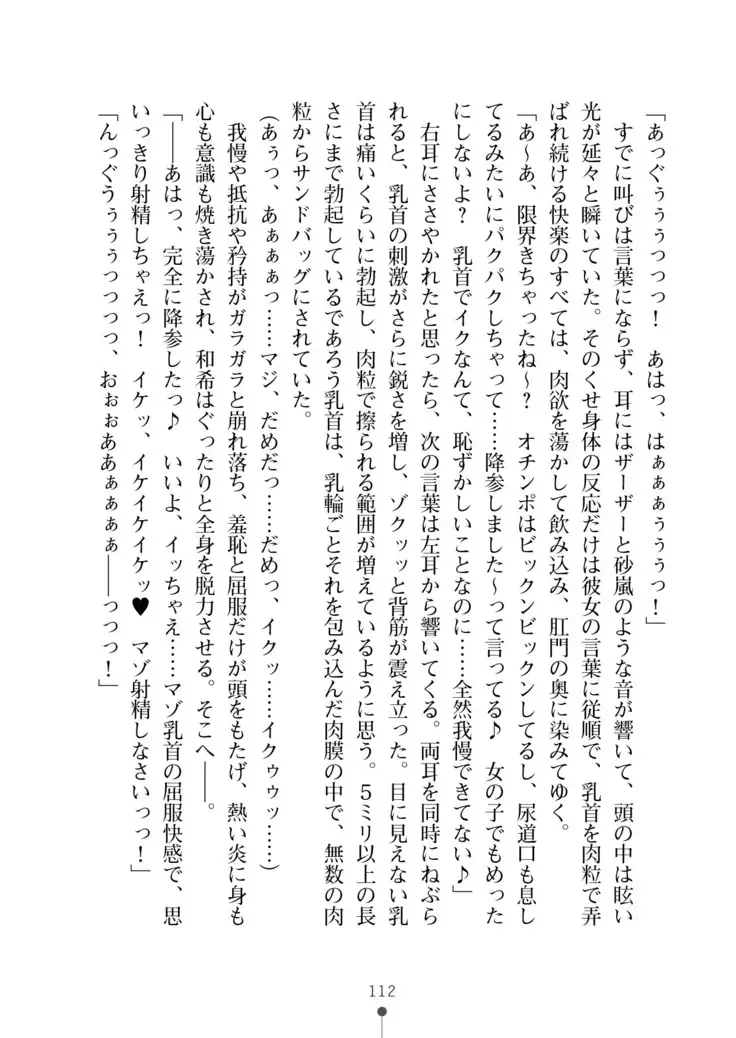 「あっぐぅぅぅつつっ！　あはっ、はぁぁぁぅぅぅっ！」
　すでに叫びは言葉にならず、耳にはザーザーと砂嵐のような音が響いて、頭の中は眩い
光が延々と瞬いていた。そのくせ身体の反応だけは彼女の言葉に従順で、乳首を肉粒で弄
ばれ続ける快楽のすべては、肉欲を蕩かして飲み込み、肛門の奥に染みてゆく。
「あ〜あ、限界きちゃったね〜？　オチンポはビックンビックンしてるし、尿道口も息し
てるみたいにパクパクしちゃって……降参しました〜って言ってる♪　女の子でもめった
にしないよ？　乳首でイクなんて、恥ずかしいことなのに……全然我慢できてない♪」
　右耳にささやかれたと思ったら、次の言葉は左耳から響いてくる。両耳を同時にねぶら
れると、乳首の刺激がさらに鋭さを増し、ゾクッッと背筋が震え立った。目に見えない乳
首は痛いくらいに勃起し、肉粒で擦られる範囲が増えているように思う。5ミリ以上の長
さにまで勃起しているであろう乳首は、乳輪ごとそれを包み込んだ肉膜の中で、無数の肉
粒からサンドバッグにされていた。
（あぅっ、あぁぁぁっ……マジ、だめだっ……だめっ、イクッ……イクゥゥッ……）
　我慢や抵抗や矜持がガラガラと崩れ落ち、羞恥と屈服だけが頭をもたげ、熱い炎に身も
心も意識も焼き蕩かされ、和希はぐったりと全身を脱力させる。そこへ――。
「――あはっ、完全に降参したっ♪　いいよ、イッちゃえ……マゾ乳首の屈服快感で、思
いっきり射精しちゃえっ！　イケッ、イケイケイケッ♥　マゾ射精しなさいっっ！」
「んっぐうぅぅぅっつつっ、おぉぉああぁぁぁぁ――っっっ！」
112